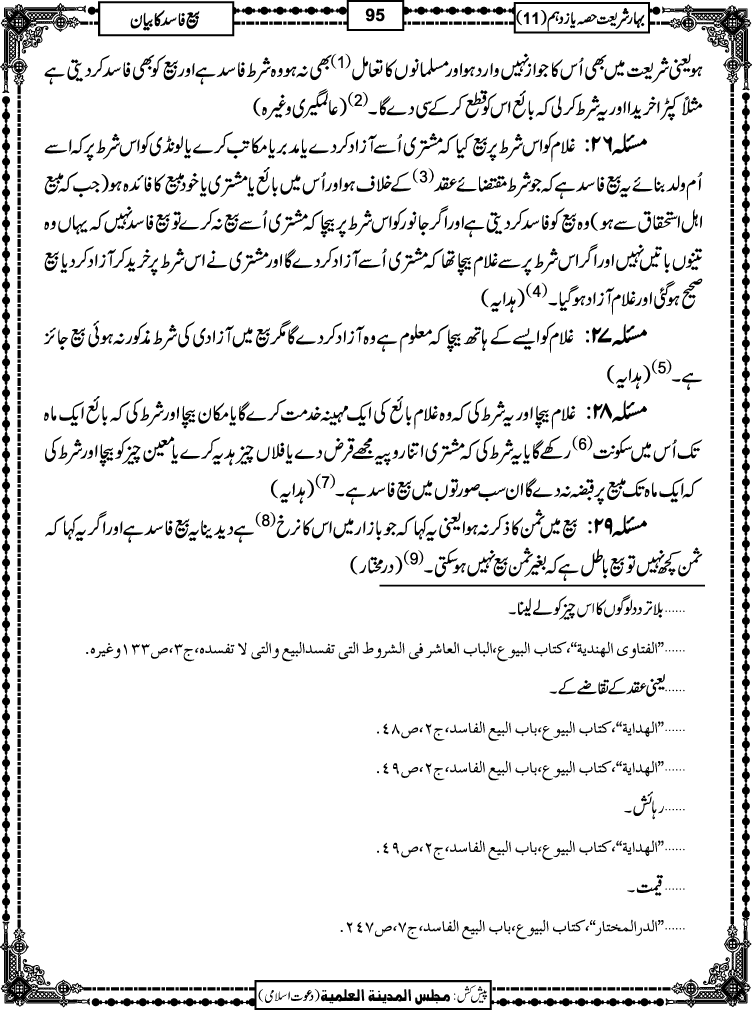 بہار شریعت حصہ یازدہم (11)
95
بیع فاسد کا بیان
ہو یعنی شریعت میں بھی اُس کا جواز نہیں وارد ہوا اور مسلمانوں کا تعامل (1) بھی نہ ہو وہ شرط فاسد ہے اور بیع کو بھی فاسد کر دیتی ہے
مثلاً کپڑا خریدا اور یہ شرط کر لی کہ بائع اس کو قطع کر کے سی دے گا۔ (2) (عالمگیری وغیرہ)
مسئلہ ۲۶: غلام کو اس شرط پر بیع کیا کہ مشتری اُسے آزاد کر دے یا مدبر یا مکاتب کرے یا لونڈی کو اس شرط پر کہ اسے
اُم ولد بنائے یہ بیع فاسد ہے کہ جو شرط مقتضائے عقد (3) کے خلاف ہو اور اُس میں بائع یا مشتری یا خود مبیع کا فائدہ ہو (جب کہ مبیع
اہل استحقاق سے ہو) وہ بیع کو فاسد کر دیتی ہے اور اگر جانور کو اس شرط پر بیچا کہ مشتری اُسے بیع نہ کرے تو بیع فاسد نہیں کہ یہاں وہ
تینوں باتیں نہیں اور اگر اس شرط پر سے غلام بیچا تھا کہ مشتری اُسے آزاد کر دے گا اور مشتری نے اس شرط پر خرید کر آزاد کر دیا بیع
صحیح ہوگئی اور غلام آزاد ہو گیا۔ (4) (ہدایہ)
مسئلہ ۲۷: غلام کو ایسے کے ہاتھ بیچا کہ معلوم ہے وہ آزاد کر دے گا مگر بیع میں آزادی کی شرط مذکور نہ ہوئی بیع جائز
ہے۔ (5) (ہدایہ)
مسئلہ ۲۸: غلام بیچا اور یہ شرط کی کہ وہ غلام بائع کی ایک مہینہ خدمت کرے گا یا مکان بیچا اور شرط کی کہ بائع ایک ماہ
تک اُس میں سکونت (6) رکھے گا یا یہ شرط کی کہ مشتری اتنا روپیہ مجھے قرض دے یا فلاں چیز ہدیہ کرے یا معین چیز کو بیچا اور شرط کی
کہ ایک ماہ تک مبیع پر قبضہ نہ دے گا ان سب صورتوں میں بیع فاسد ہے۔ (7) (ہدایہ)
مسئلہ ۲۹: بیع میں ثمن کا ذکر نہ ہوا یعنی یہ کہا کہ جو بازار میں اس کا نرخ (8) ہے دیدینا یہ بیع فاسد ہے اور اگر یہ کہا کہ
ثمن کچھ نہیں تو بیع باطل ہے کہ بغیر ثمن بیع نہیں ہو سکتی۔ (9) (درمختار)
......بلا تردد لوگوں کا اس چیز کو لے لینا۔
......"الفتاوی الھندیة"، کتاب البیوع، الباب العاشر فی الشروط التی تفسد البیع والتی لا تفسدہ، ج۳، ص۱۳۳ وغیرہ.
......یعنی عقد کے تقاضے کے۔
......"الھدایة"، کتاب البیوع، باب البیع الفاسد، ج۲، ص۴۸.
......"الھدایة"، کتاب البیوع، باب البیع الفاسد، ج۲، ص۴۹.
......رہائش۔
......"الھدایة"، کتاب البیوع، باب البیع الفاسد، ج۲، ص۴۹.
......قیمت۔
......"الدرالمختار"، کتاب البیوع، باب البیع الفاسد، ج۷، ص۲۴۷.
پیش کش: مجلس المدینة العلمیة (دعوت اسلامی)